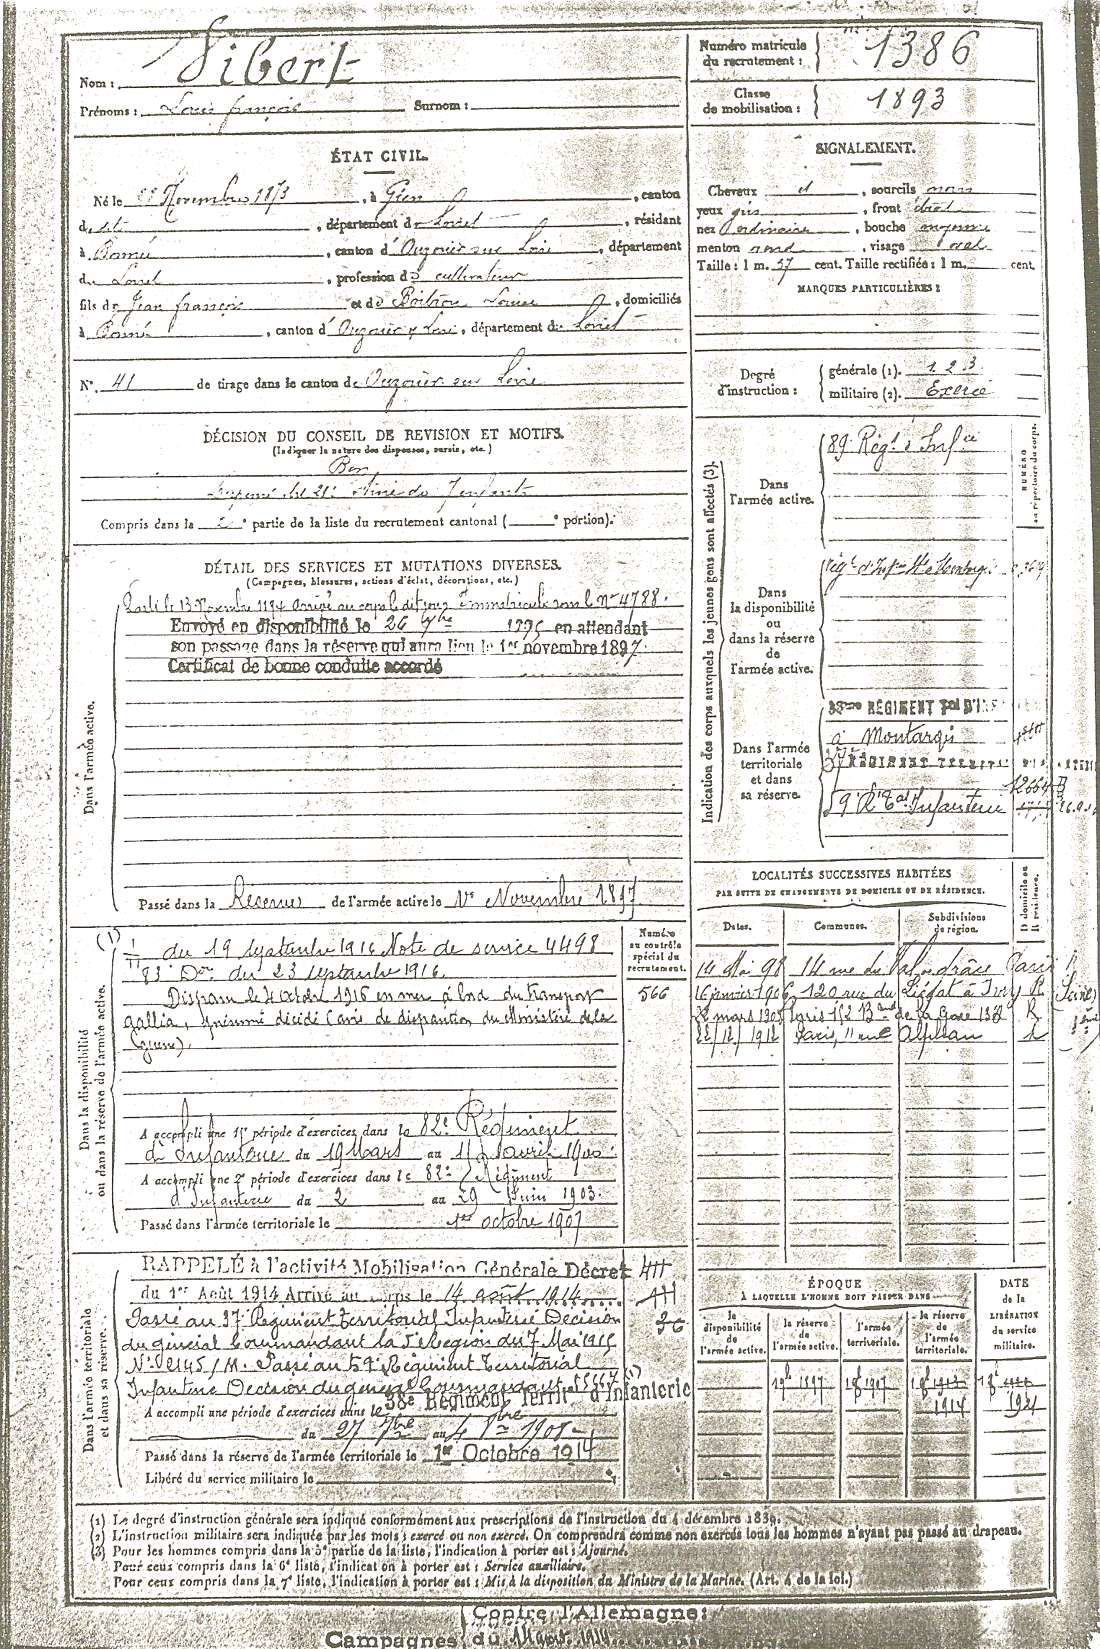 Nom : Vibert
Prénoms : Louis françois Surnom :
Numéro matricule du recrutement : 1386
Classe de mobilisation : 1893
ÉTAT CIVIL.
Né le Novembre 1873, à Gien, canton
d dit, département du Loiret, résidant
à, canton d'Ouzouer sur Loire, département
du Loiret, profession de cultivateur
fils de Jean françois et de Louise, domiciliés
à, canton d'Ouzouer s/ Loire, département du Loiret
N°. 41 de tirage dans le canton de Ouzouer sur Loire
SIGNALEMENT.
Cheveux et, sourcils noirs
yeux gris, front droit
nez ordinaire, bouche moyenne
menton rond, visage oval
Taille : 1 m. 57 cent. Taille rectifiée : 1 m. cent.
MARQUES PARTICULIÈRES :
Degré d'instruction :
générale (1). 1 2 3
militaire (2). Exercé
DÉCISION DU CONSEIL DE REVISION ET MOTIFS.
(Indiquer la nature des dispenses, sursis, etc.)
Bon
Dispensé Art 21 : Aîné de 7 enfants
Compris dans la partie de la liste du recrutement cantonal ( portion).
DÉTAIL DES SERVICES ET MUTATIONS DIVERSES.
(Campagnes, blessures, actions d'éclat, décorations, etc.)
Dans l'armée active.
Parti le 13 Novembre 1894 Arrivé au corps le dit jour Immatriculé sous le N° 4788.
Envoyé en disponibilité le 26 7bre 1895 en attendant
son passage dans la réserve qui aura lieu le 1er novembre 1897.
Certificat de bonne conduite accordé
Passé dans la Réserve de l'armée active le 1er Novembre 1897
Indication des corps auxquels les jeunes gens sont affectés (3).
NUMÉRO au répertoire du corps.
Dans l'armée active.
89e Régt d'Infie
Dans la disponibilité ou dans la réserve de l'armée active.
Régt d'Infie de
Dans l'armée territoriale et dans sa réserve.
38me RÉGIMENT Tal D'INF
à Montargis
37e RÉGIMENT TERRIT
59e R. Tal Infanterie
12664
LOCALITÉS SUCCESSIVES HABITÉES
PAR SUITE DE CHANGEMENTS DE DOMICILE OU DE RÉSIDENCE.
Dates. Communes. Subdivisions de région. D domicile ou R résidence.
14 Mai 98 14 rue du Val de grâce Paris
16 janvier 1906 120 rue du Liégat à Ivry R (Seine)
22 mars 1908 Paris 152 Bard de la Gare 13e R
22/12/1912 Paris, 11 rue
Dans la disponibilité ou dans la réserve de l'armée active.
Numéro au contrôle spécial du recrutement.
566
(1) du 19 septembre 1916 Note de service 4498
du 23 septembre 1916.
Disparu le 4 octobre 1916 en mer à bord du transport
Gallia, présumé décédé (avis de disparition du Ministère de la
Guerre).
A accompli une 1re période d'exercices dans le 82e Régiment
d'Infanterie du 19 Mars au Avril 1900
A accompli une 2e période d'exercices dans le 82e Régiment
d'Infanterie du 2 au 29 Juin 1903.
Passé dans l'armée territoriale le 1er octobre 1907
Dans l'armée territoriale et dans sa réserve.
RAPPELÉ à l'activité Mobilisation Générale Décret
du 1er Août 1914 Arrivé au corps le 14 août 1914
Passé au 37e Régiment Territorial Infanterie Décision
du général Commandant la 5e Région du 7 Mai 1915
N° 2145/M. Passé au 59e Régiment Territorial
Infanterie Décision du général Commandant
38e Régiment Territ d'Infanterie
A accompli une période d'exercices dans le
du 27 7bre au 1908
Passé dans la réserve de l'armée territoriale le 1er Octobre 1914
Libéré du service militaire le
ÉPOQUE
À LAQUELLE L'HOMME DOIT PASSER DANS
la disponibilité de l'armée active. la réserve de l'armée active. l'armée territoriale. la réserve de l'armée territoriale.
DATE de la LIBÉRATION du service militaire.
1897 1907 1913
1914 1921
(1) Le degré d'instruction générale sera indiqué conformément aux prescriptions de l'instruction du 4 décembre 1889.
(2) L'instruction militaire sera indiquée par les mots : exercé ou non exercé. On comprendra comme non exercés tous les hommes n'ayant pas passé au drapeau.
(3) Pour les hommes compris dans la 5e partie de la liste, l'indication à porter est : Ajourné.
Pour ceux compris dans la 6e liste, l'indication à porter est : Service auxiliaire.
Pour ceux compris dans la 7e liste, l'indication à porter est : Mis à la disposition du Ministre de la Marine. (Art. 4 de la loi.)
Contre l'Allemagne :
Campagnes du 14 août 1914